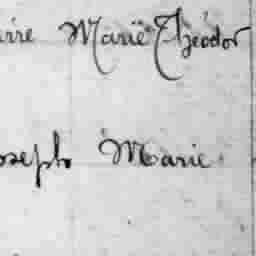 rre Marie Théodor
oseph Marie